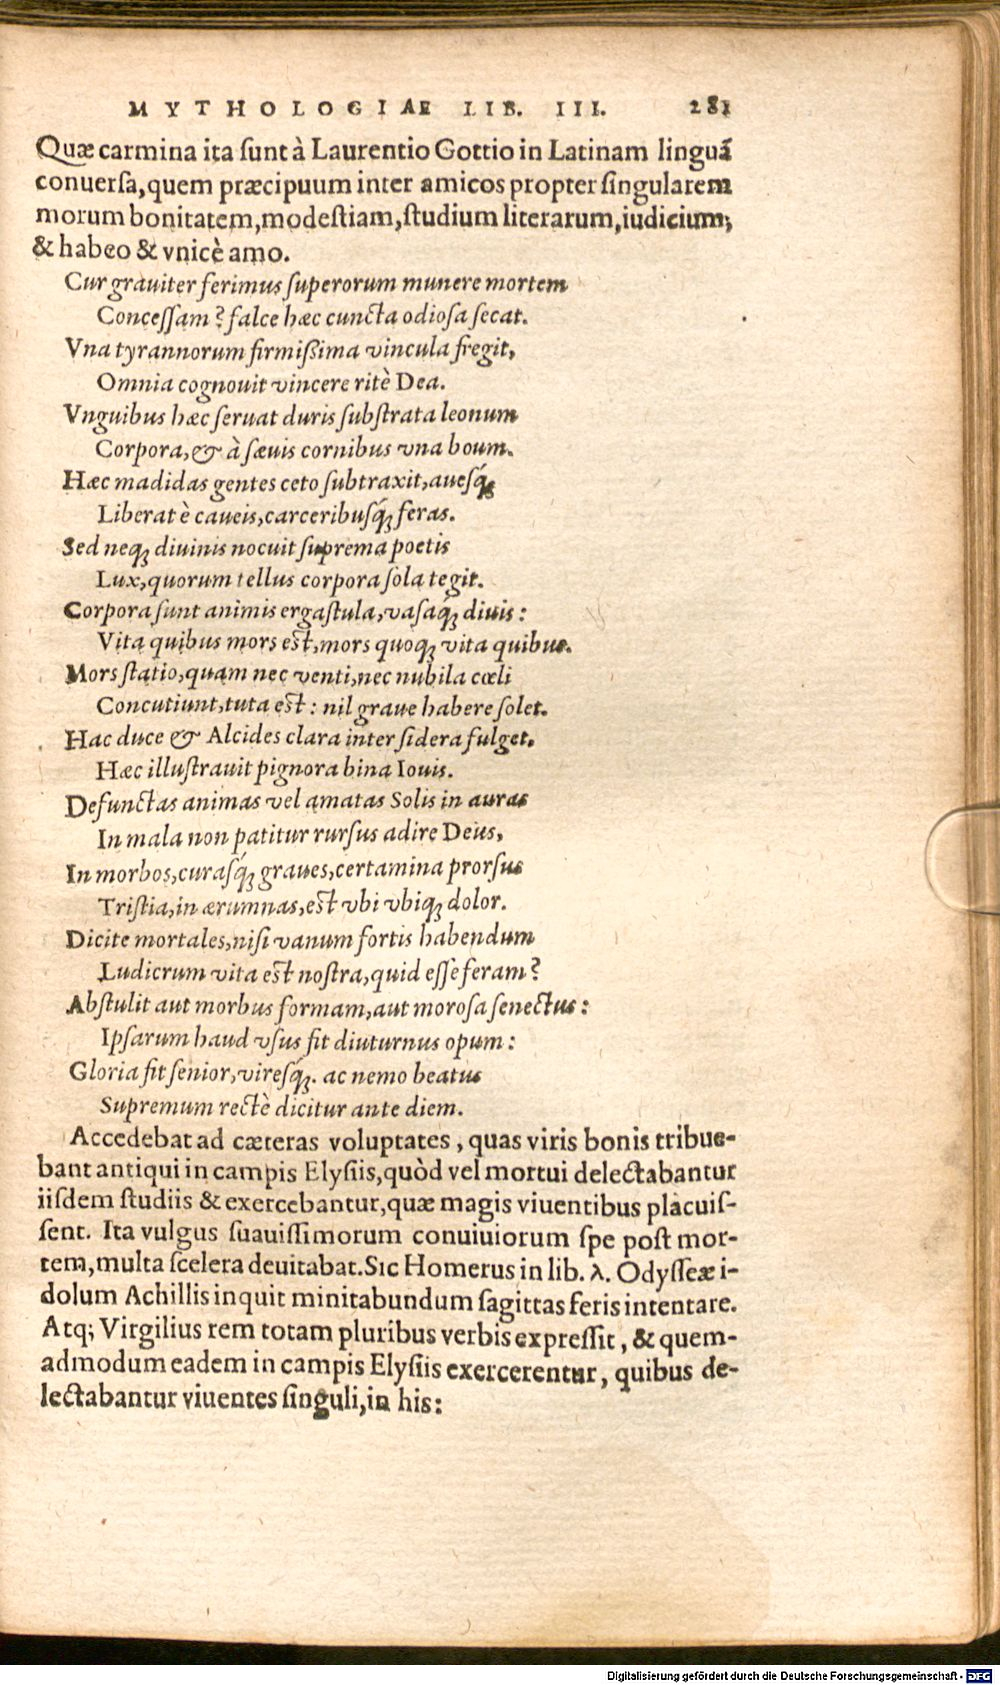 MYTHOLOGIAE LIB. III. 281
Quæ carmina ita sunt à Laurentio Gottio in Latinam linguā
conuersa, quem præcipuum inter amicos propter singularem
morum bonitatem, modestiam, studium literarum, iudicium;
& habeo & vnicè amo.
Cur grauiter ferimus superorum munere mortem
Concessam? falce hæc cuncta odiosa secat.
Vna tyrannorum firmißima vincula fregit,
Omnia cognouit vincere ritè Dea.
Vnguibus hæc seruat duris substrata leonum
Corpora, & à sæuis cornibus vna boum.
Hæc madidas gentes ceto subtraxit, auesq́;
Liberat è caueis, carceribusq́; feras.
Sed neq; diuinis nocuit suprema poetis
Lux, quorum tellus corpora sola tegit.
Corpora sunt animis ergastula, vasaq́; diuis:
Vita quibus mors est, mors quoq; vita quibus.
Mors statio, quam nec venti, nec nubila cœli
Concutiunt, tuta est: nil graue habere solet.
Hac duce & Alcides clara inter sidera fulget.
Hæc illustrauit pignora bina Iouis.
Defunctas animas vel amatas Solis in auras
In mala non patitur rursus adire Deus,
In morbos, curasq́; graues, certamina prorsus
Tristia, in ærumnas, est vbi vbiq; dolor.
Dicite mortales, nisi vanum fortis habendum
Ludicrum vita est nostra, quid esse feram?
Abstulit aut morbus formam, aut morosa senectus:
Ipsarum haud vsus fit diuturnus opum:
Gloria fit senior, viresq́;. ac nemo beatus
Supremum rectè dicitur ante diem.
Accedebat ad cæteras voluptates, quas viris bonis tribue-
bant antiqui in campis Elysiis, quòd vel mortui delectabantur
iisdem studiis & exercebantur, quæ magis viuentibus placuis-
sent. Ita vulgus suauissimorum conuiuiorum spe post mor-
tem, multa scelera deuitabat. Sic Homerus in lib. λ. Odysseæ i-
dolum Achillis inquit minitabundum sagittas feris intentare.
Atq; Virgilius rem totam pluribus verbis expressit, & quem-
admodum eadem in campis Elysiis exercerentur, quibus de-
lectabantur viuentes singuli, in his:
Digitalisierung gefördert durch die Deutsche Forschungsgemeinschaft - DFG